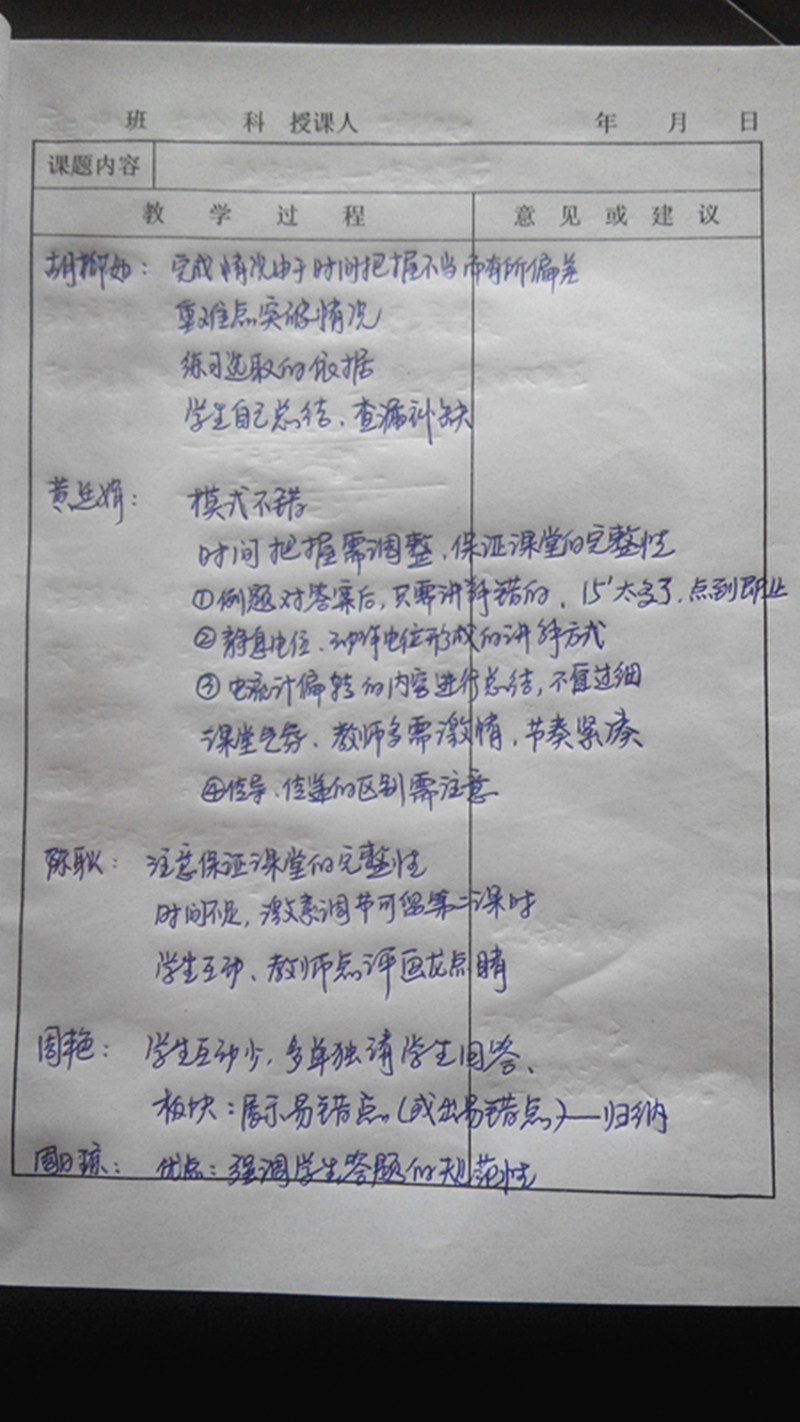 班 科 授课人 年 月 日
课题内容
教 学 过 程 意 见 或 建 议
胡柳 : 完成情况由于时间把握不当而有所偏差
重难点突破情况
练习选取的依据
学生自己总结、查漏补缺
黄 娟: 模式不错
时间把握需调整,保证课堂的完整性
①例题对答案后,只需讲解错的、15'太多了,点到即止
②静息电位、动作电位形成的讲解方式
③电流计偏转的内容进行总结,不宜过细
课堂气氛、教师多需激情,节奏紧凑
④传导、传递的区别需注意
陈耿: 注意保证课堂的完整性
时间不足,激素调节可留第二课时
学生互动、教师点评画龙点睛
周艳: 学生互动少,多单独请学生回答、
板块:展示易错点(或出易错点)——归纳
周日琼: 优点:强调学生答题的规范性